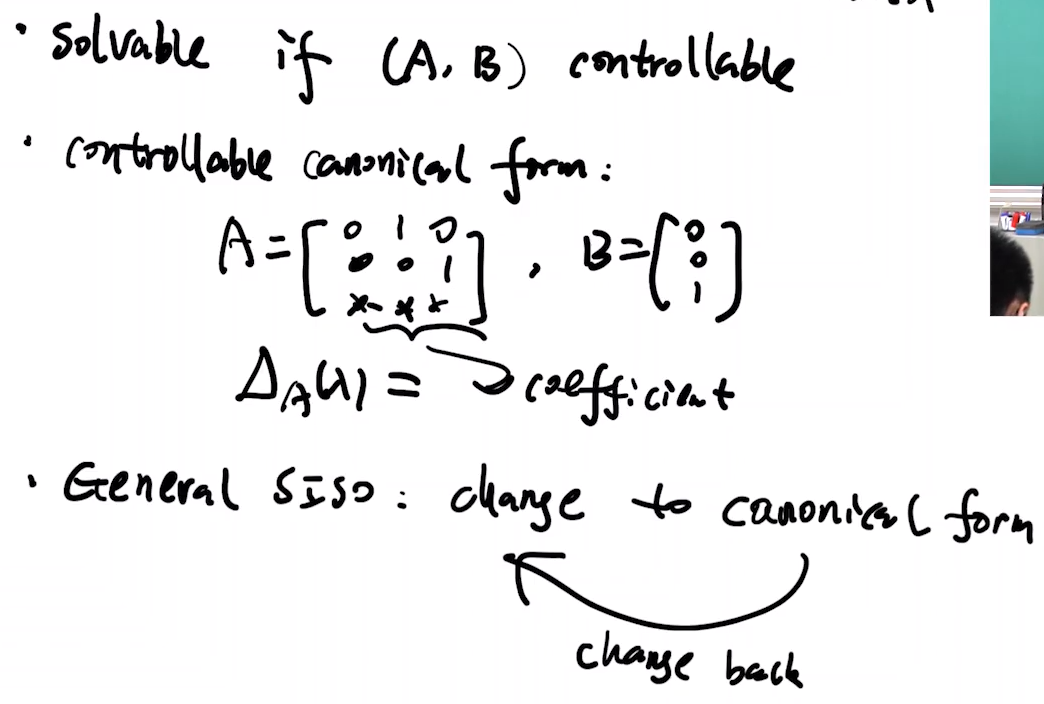 • Solvable if (A, B) controllable
• controllable canonical form:
A = [0 1 0; 0 0 1; * * *], B = [0; 0; 1]
Δ_A(λ) = coefficient
• General SISO: change to canonical form
change back